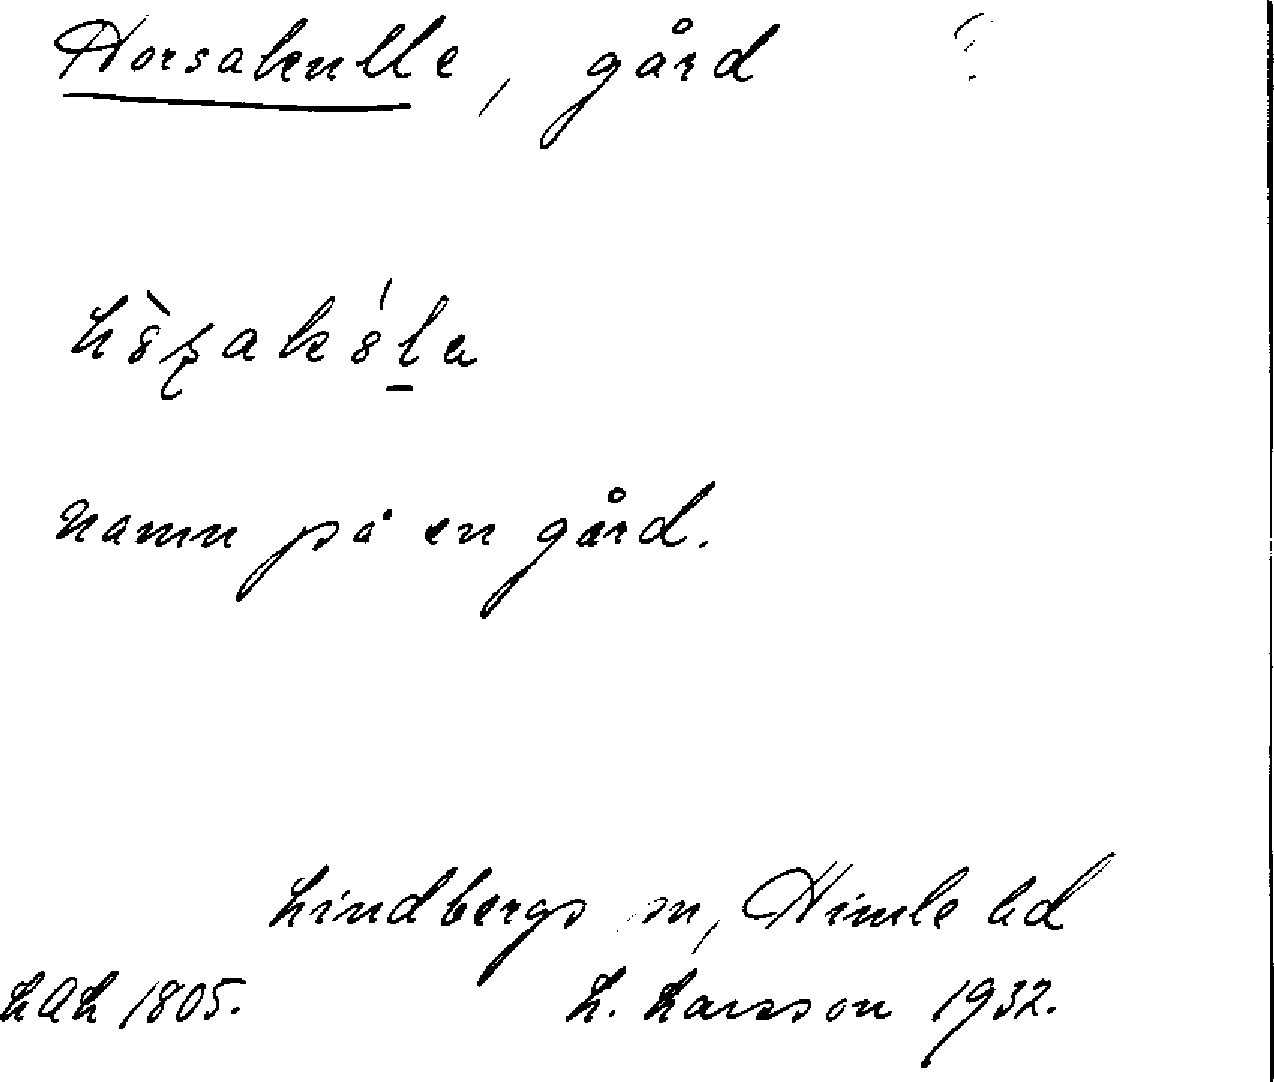 Horsakulle, gård ?
namn på en gård.
Lindbergs sn, Himle hd
LAL 1805. L. Larsson 1932.